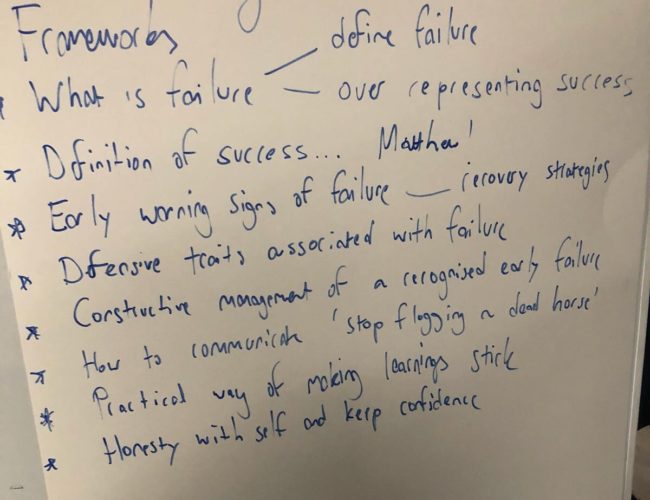 Frameworks
What is failure — define failure
— over representing success
* Dfinition of success... Matthew!
* Early warning signs of failure — recovery strategies
* Dfensive traits associated with failure
* Constructive management of a recognised early failure
* How to communicate 'stop flogging a dead horse'
* Practical way of making learnings stick
* Honesty with self and keep confidence